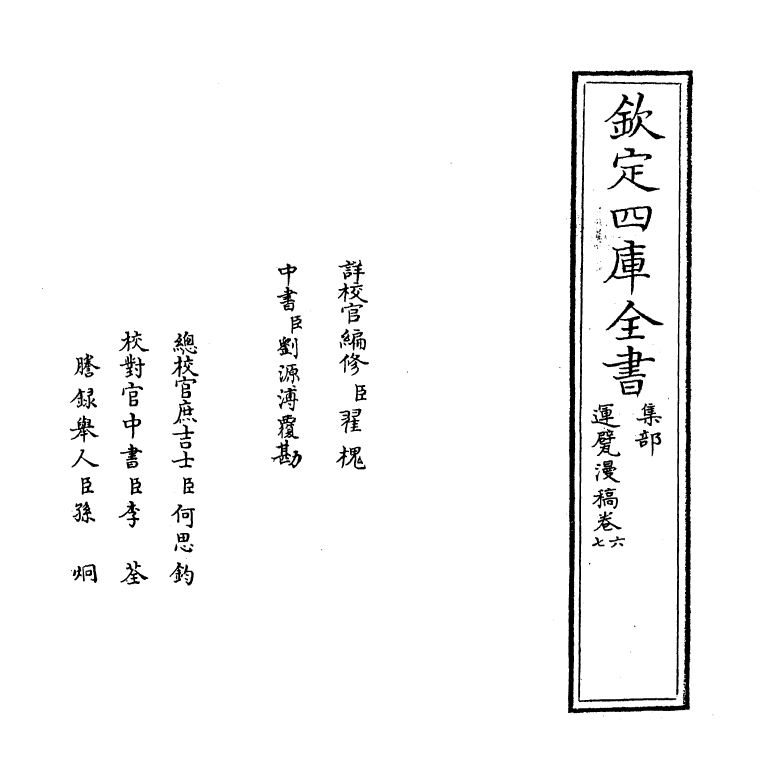 欽定四庫全書
集部
運甓漫稿卷六七
詳校官編修臣翟槐
中書臣劉源溥覆勘
總校官庶吉士臣何思鈞
校對官中書臣李荃
謄錄舉人臣孫炯